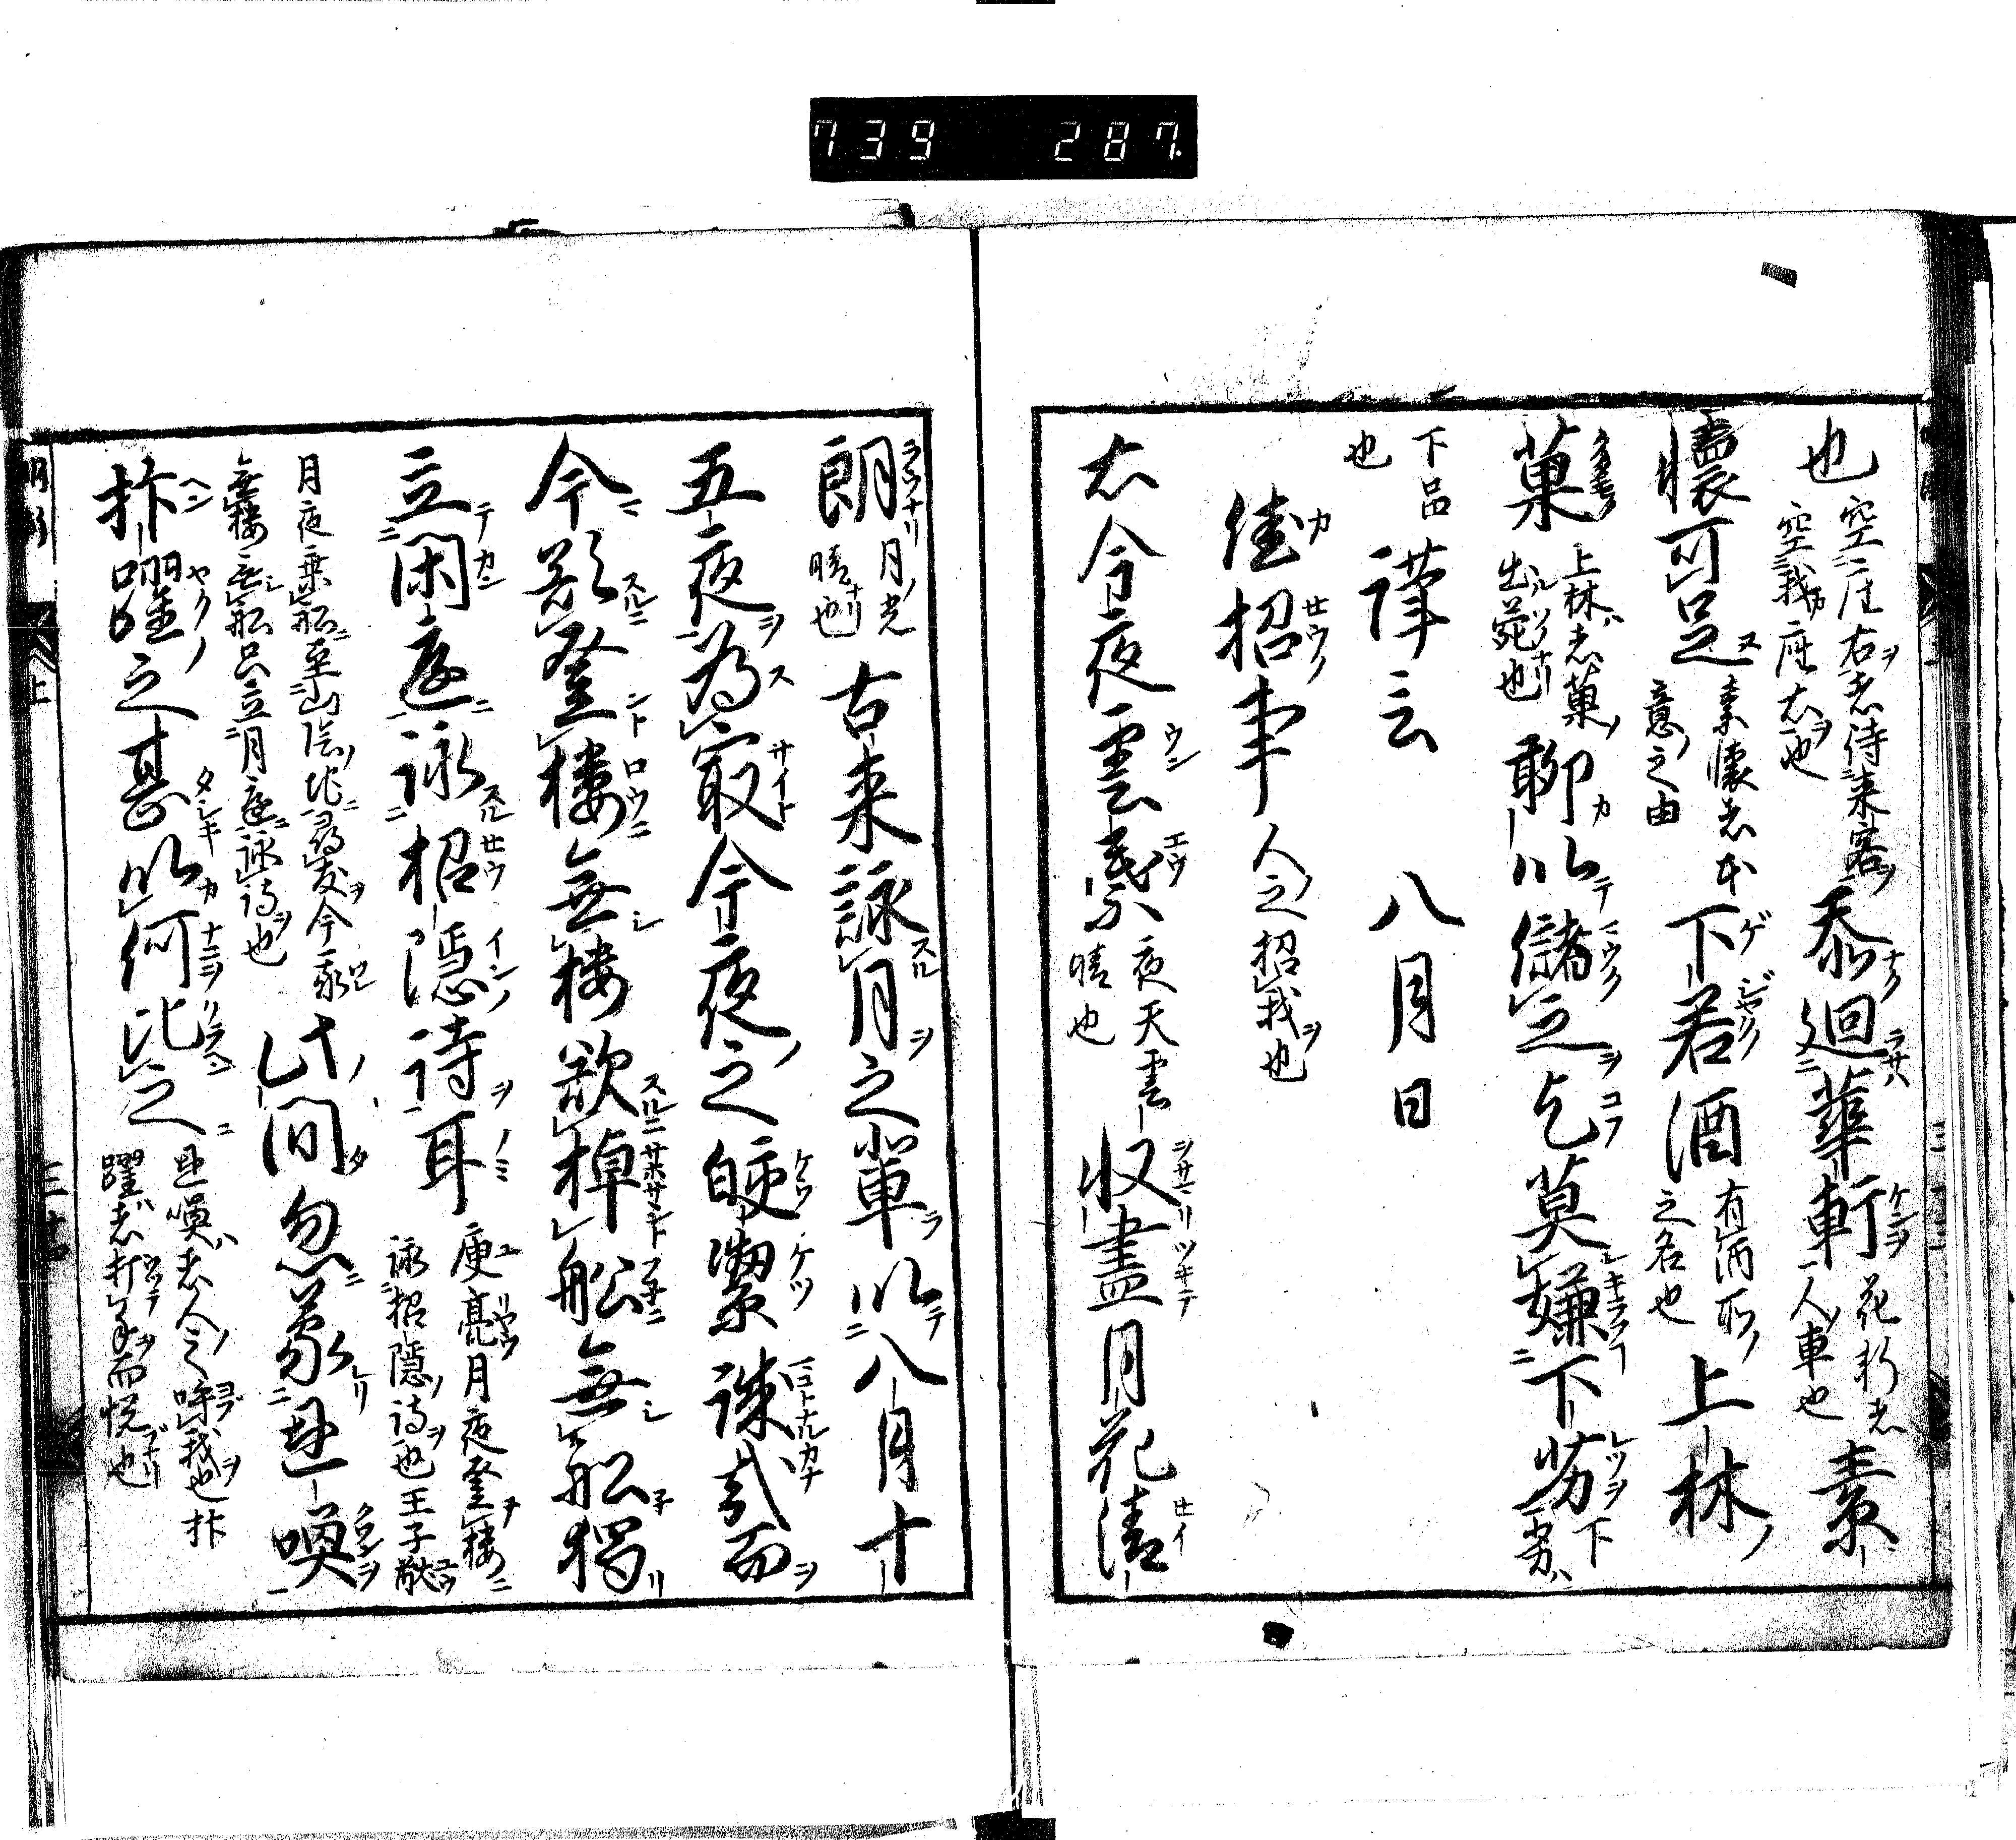 739 287.
也 空座右者待来客
空我座右也 忝廻華軒 花軒者
人車也 素
懐可足 素懐者本
意之由 下若酒 有酒所
之名也 上林
菓 上林者菓
出苑也 聊以儲之乞莫嫌下劣 下
劣
下品
也 謹言 八月日
佳招事 人之招我也
右今夜雲素 夜天雲
晴也 収盡月花清
朗 月光
晴也 古来詠月之輩以八月十
五夜為最今夜之皎潔誠貳而
今欲登楼無楼欲棹舩無舩獨
立閑庭詠招隠詩耳 庾亮月夜登楼
詠招隠詩也王子猷
月夜乗舩至山陰尋友今家
無楼無舩只立月庭詠詩也 此間忽蒙
喚
抃躍之甚以何比之 喚者人之呼我也抃
躍者打手而悦也
上